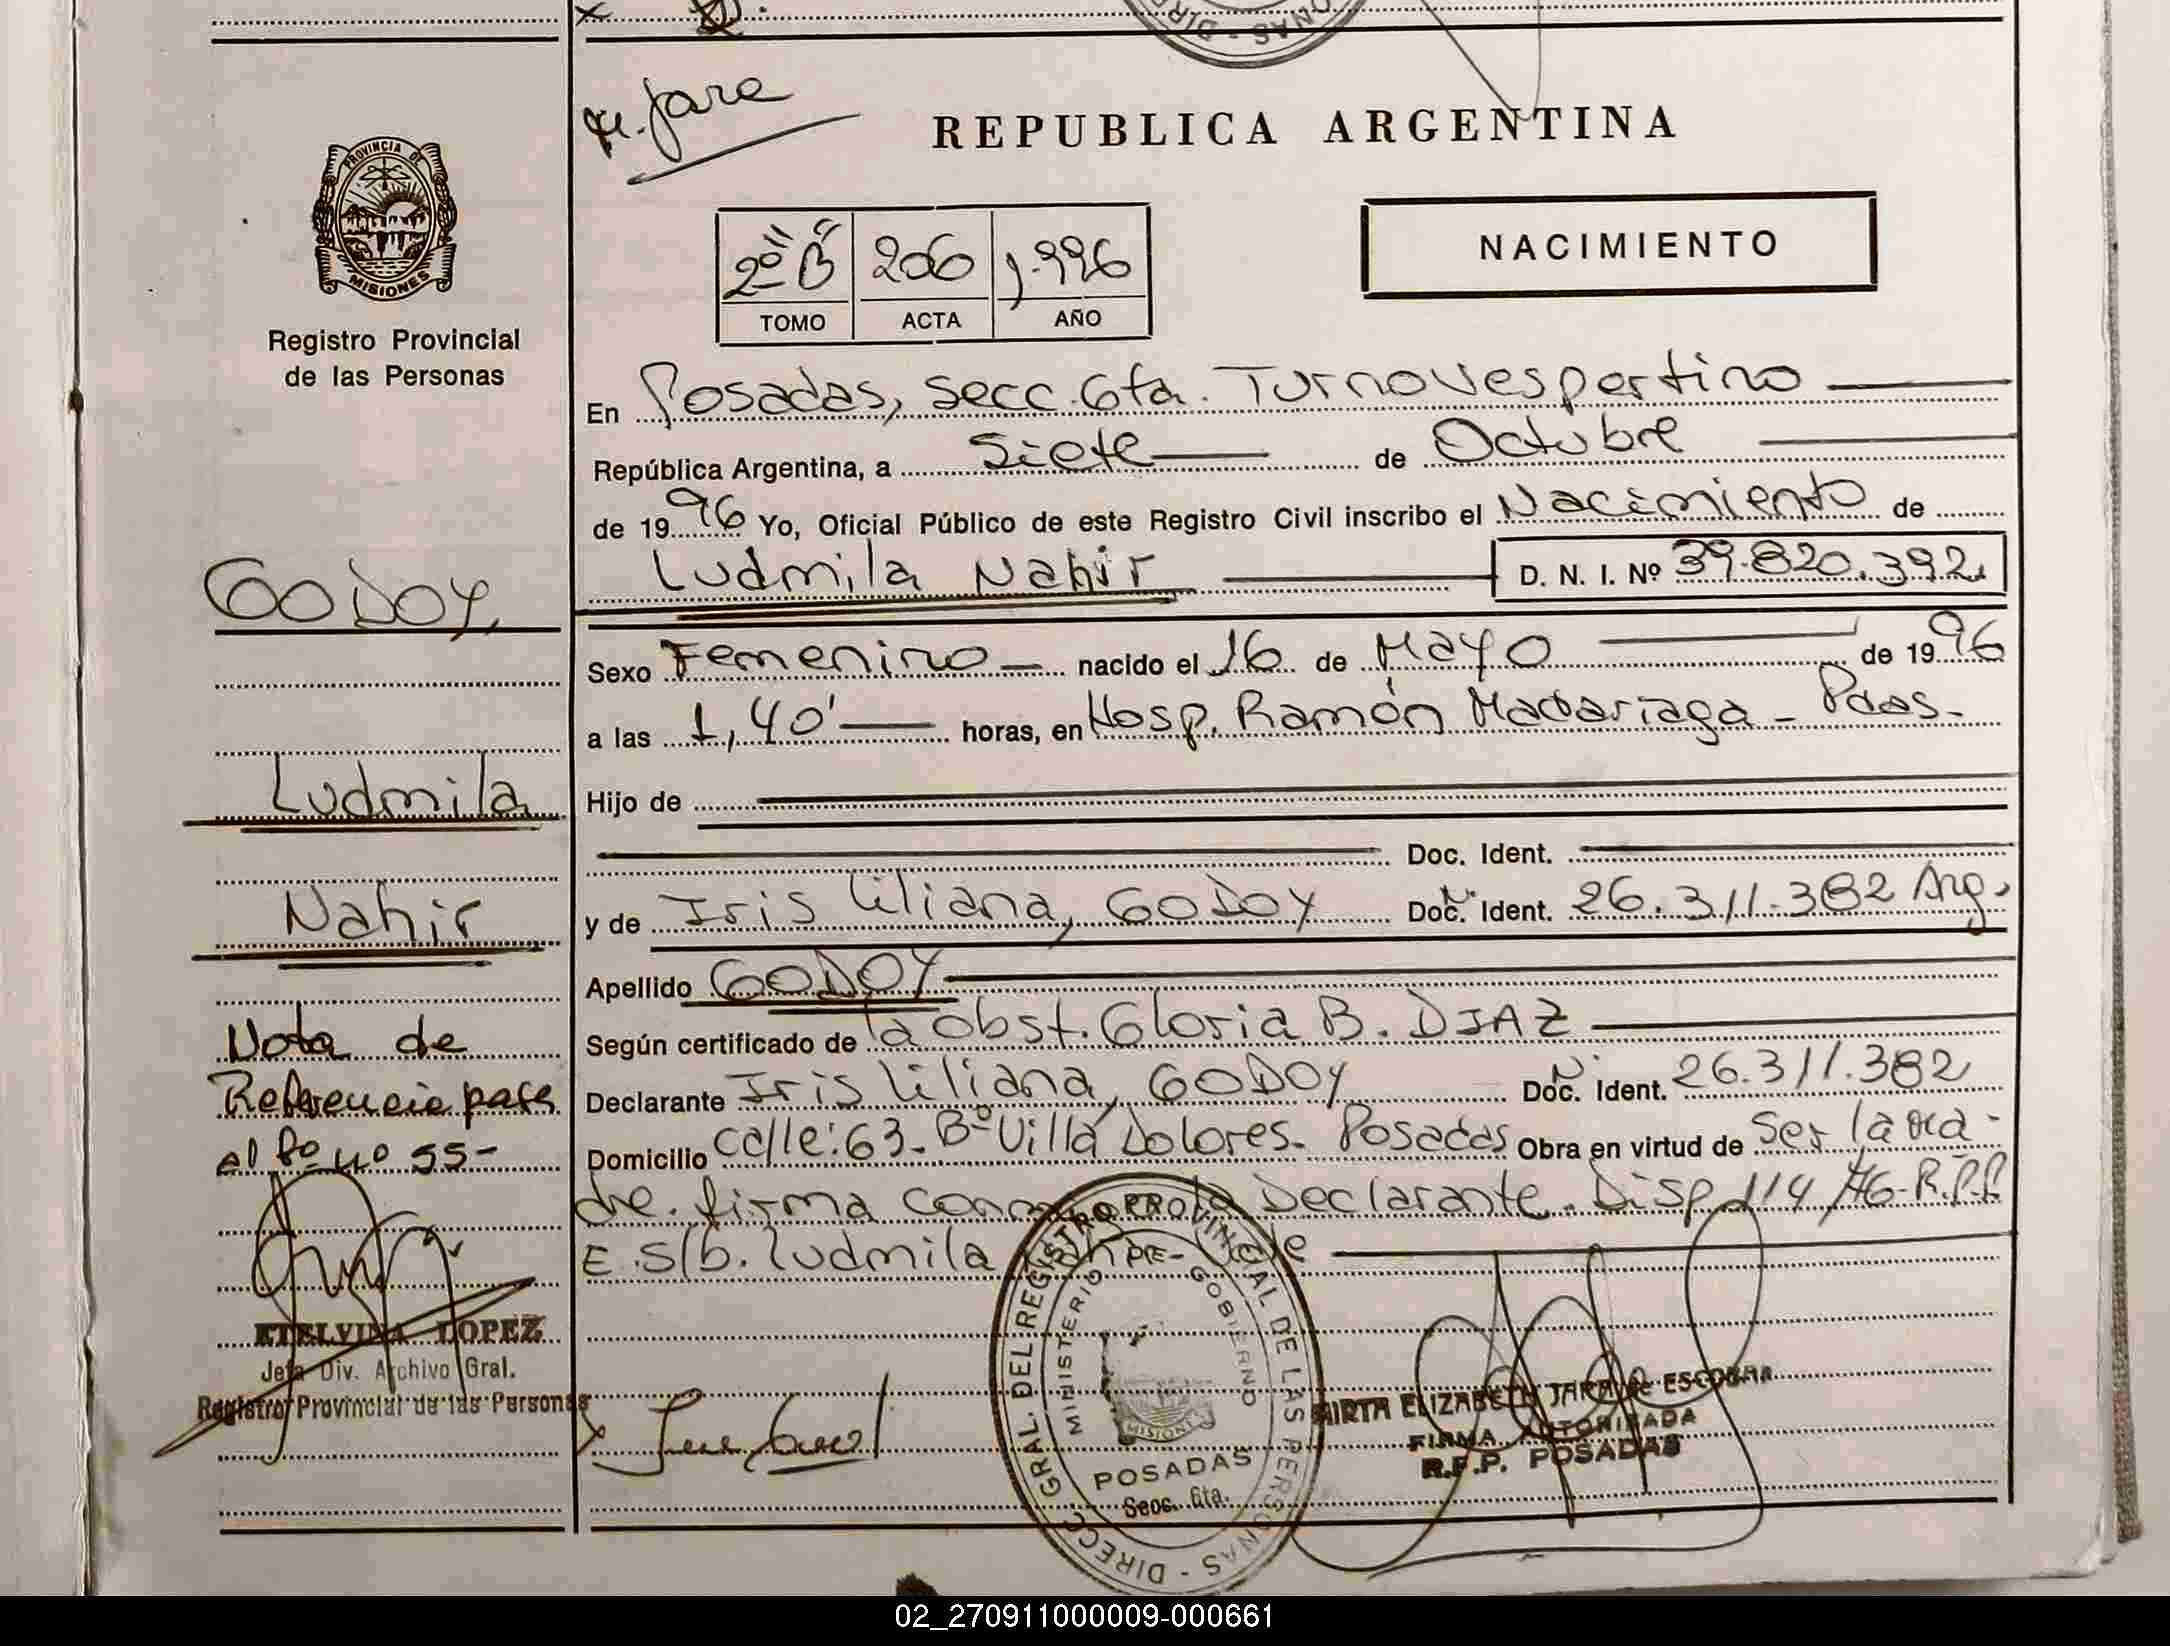 M. Jara
REPUBLICA ARGENTINA
PROVINCIA DE
MISIONES
Registro Provincial
de las Personas
NACIMIENTO
2º "B" 206 1.996
TOMO ACTA AÑO
En Posadas, Secc. 6ta. Turno Vespertino
República Argentina, a Siete de Octubre
de 1996 Yo, Oficial Público de este Registro Civil inscribo el Nacimiento de
Ludmila Nahir D. N. I. Nº 39.820.392
Sexo Femenino nacido el 16 de Mayo de 1996
a las 1,40' horas, en Hosp. Ramón Madariaga - Pdas.
Hijo de
Doc. Ident.
y de Iris Liliana, GODOY Doc. Ident. 26.311.382 Arg.
Apellido GODOY
Según certificado de la Obst. Gloria B. DIAZ
Declarante Iris Liliana, GODOY Doc. Ident. 26.311.382
Domicilio Calle: 63. Bº Villa Dolores. Posadas Obra en virtud de Ser la ma-
dre. firma conmigo la Declarante. Disp. 114/96-R.P.P
E. S/b. Ludmila Vale
GODOY,
Ludmila
Nahir
Nota de
Referencia pasa
al fº nº 55-
ETELVINA LOPEZ
Jefa Div. Archivo Gral.
Registro Provincial de las Personas
DIRECC. GRAL. DEL REGISTRO PROVINCIAL DE LAS PERSONAS
MINISTERIO DE GOBIERNO
MISIONES
POSADAS
Secc. 6ta.
MIRTA ELIZABETH JARA de ESCOBAR
FIRMA AUTORIZADA
R.P.P. POSADAS
02_270911000009-000661